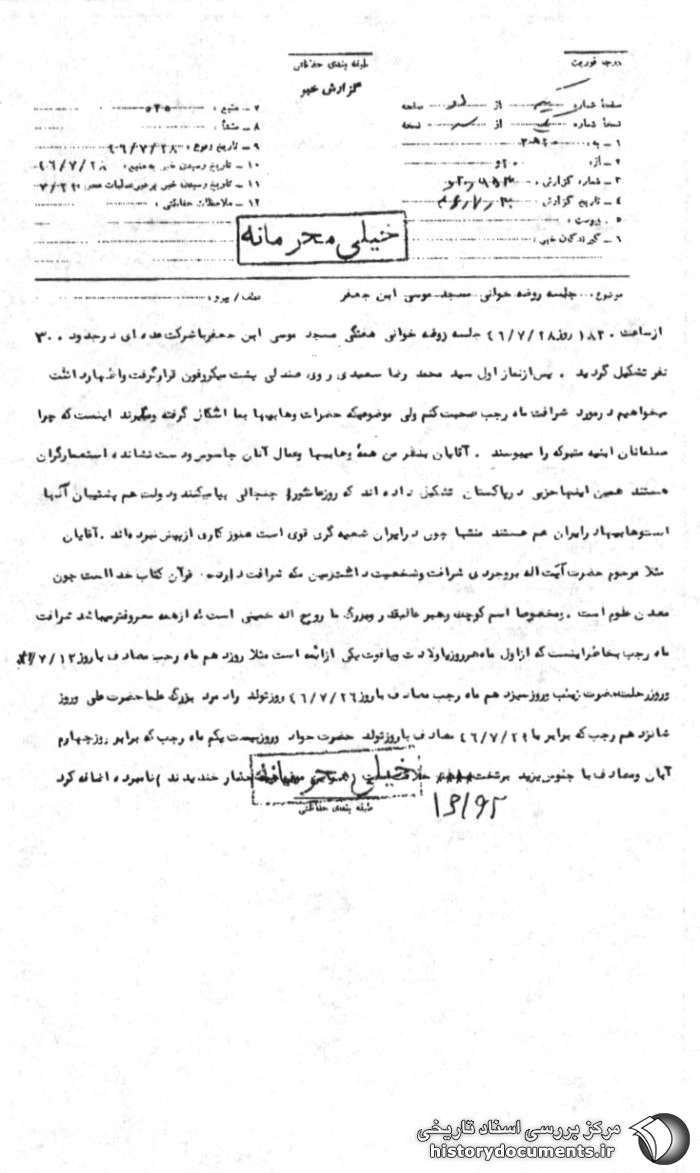 درجه فوریت
طبقه بندی حفاظتی
گزارش خبر
صفحه شماره از صفحه
نسخه شماره از نسخه
۱ - به :
۲ - از :
۳ - شماره گزارش :
۴ - تاریخ گزارش :
۵ - پیوست :
۶ - گیرندگان خبر :
۷ - منبع :
۸ - منشأ :
۹ - تاریخ وقوع : ۴۶/۷/۲۸
۱۰ - تاریخ رسیدن خبر به منبع : ۴۶/۷/۲۸
۱۱ - تاریخ رسیدن خبر به رهبر عملیات
۱۲ - ملاحظات حفاظتی :
خیلی محرمانه
موضوع : جلسه روضه خوانی مسجد موسی ابن جعفر
عطف / پیرو :
از ساعت ۱۸۳۰ روز ۴۶/۷/۲۸ جلسه روضه خوانی هفتگی مسجد موسی ابن جعفر با شرکت عده ای در حدود ۳۰۰
نفر تشکیل گردید . پس از نماز اول سید محمد رضا سعیدی روی صندلی پشت میکروفون قرار گرفت و اظهار داشت
میخواهیم در مورد شرافت ماه رجب صحبت کنم ولی موضوعیکه حضرات وهابیها بما اشکال گرفته و میگیرند اینست که چرا
مسلمانان ابنیه متبرکه را میبوسند . آقایان بنظر من همه وهابیها و عمال آنان جاسوس و دست نشانده استعمارگران
هستند همین اینها حزبی در پاکستان تشکیل داده اند که روز عاشورا جنجالی بپا میکنند و دولت هم پشتیبان آنها
است وهابیها در ایران هم هستند منتها چون در ایران شیعه گری قوی است هنوز کاری از پیش نبرده اند . آقایان
مثلا مرحوم حضرت آیت اله بروجردی شرافت و شخصیت داشت زمین مکه شرافت دارد . قرآن کتاب خداست چون
معدن علوم است . و مخصوصا اسم کوچک رهبر عالیقدر و بزرگ ما روح اله خمینی است که از همه معروفتر میباشد شرافت
ماه رجب بخاطر اینست که از اول ماه هر روز یا ولادت و یا فوت یکی از ائمه است مثلا روز دهم ماه رجب مصادف با روز
و روز رحلت حضرت زینب و روز سیزدهم ماه رجب مصادف با روز ۴۶/۷/۲۶ روز تولد راد مرد بزرگ علما حضرت علی و روز
شانزدهم رجب که برابر با ۴۶/۷/۲۹ مصادف با روز تولد حضرت جواد و روز بیست یکم ماه رجب که برابر روز چهارم
آبان و مصادف با جلوس یزید بر تخت حضار خندیدند ) نامبرده اضافه کرد
خیلی محرمانه
طبقه بندی حفاظتی
مرکز بررسی اسناد تاریخی
historydocuments.ir